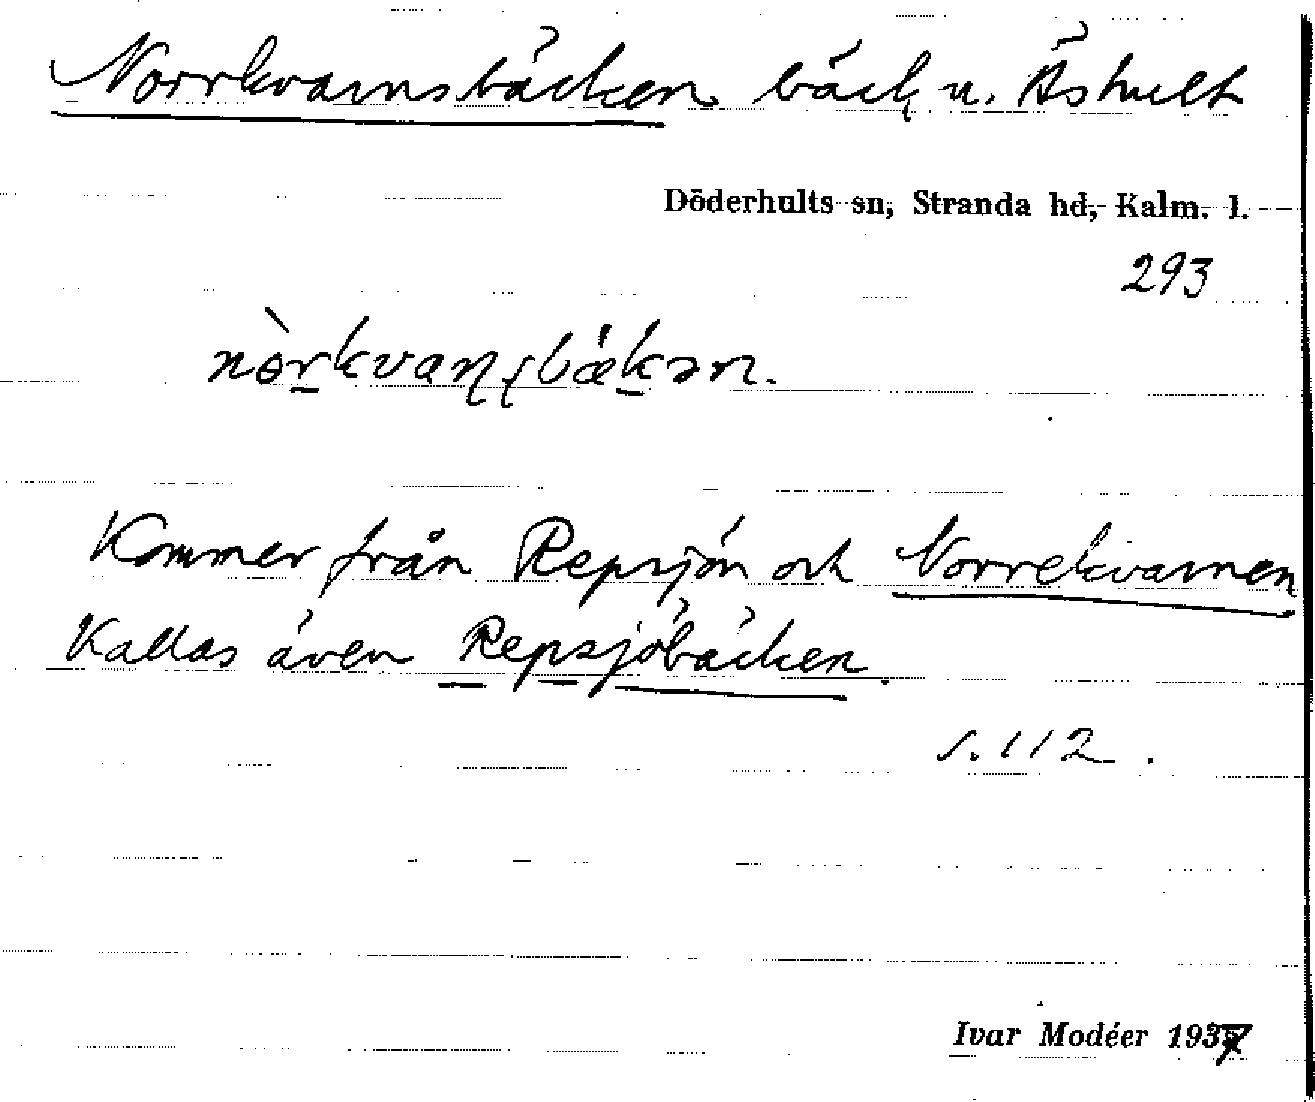 Norrkvarnsbäcken bäck u. Äshult
Döderhults sn, Stranda hd, Kalm. l.
293
nòrkvaɳʂbækən.
Kommer från Repsjön och Norrekvarnen
Kallas även Repsjöbäcken.
s. 112.
Ivar Modéer 1937